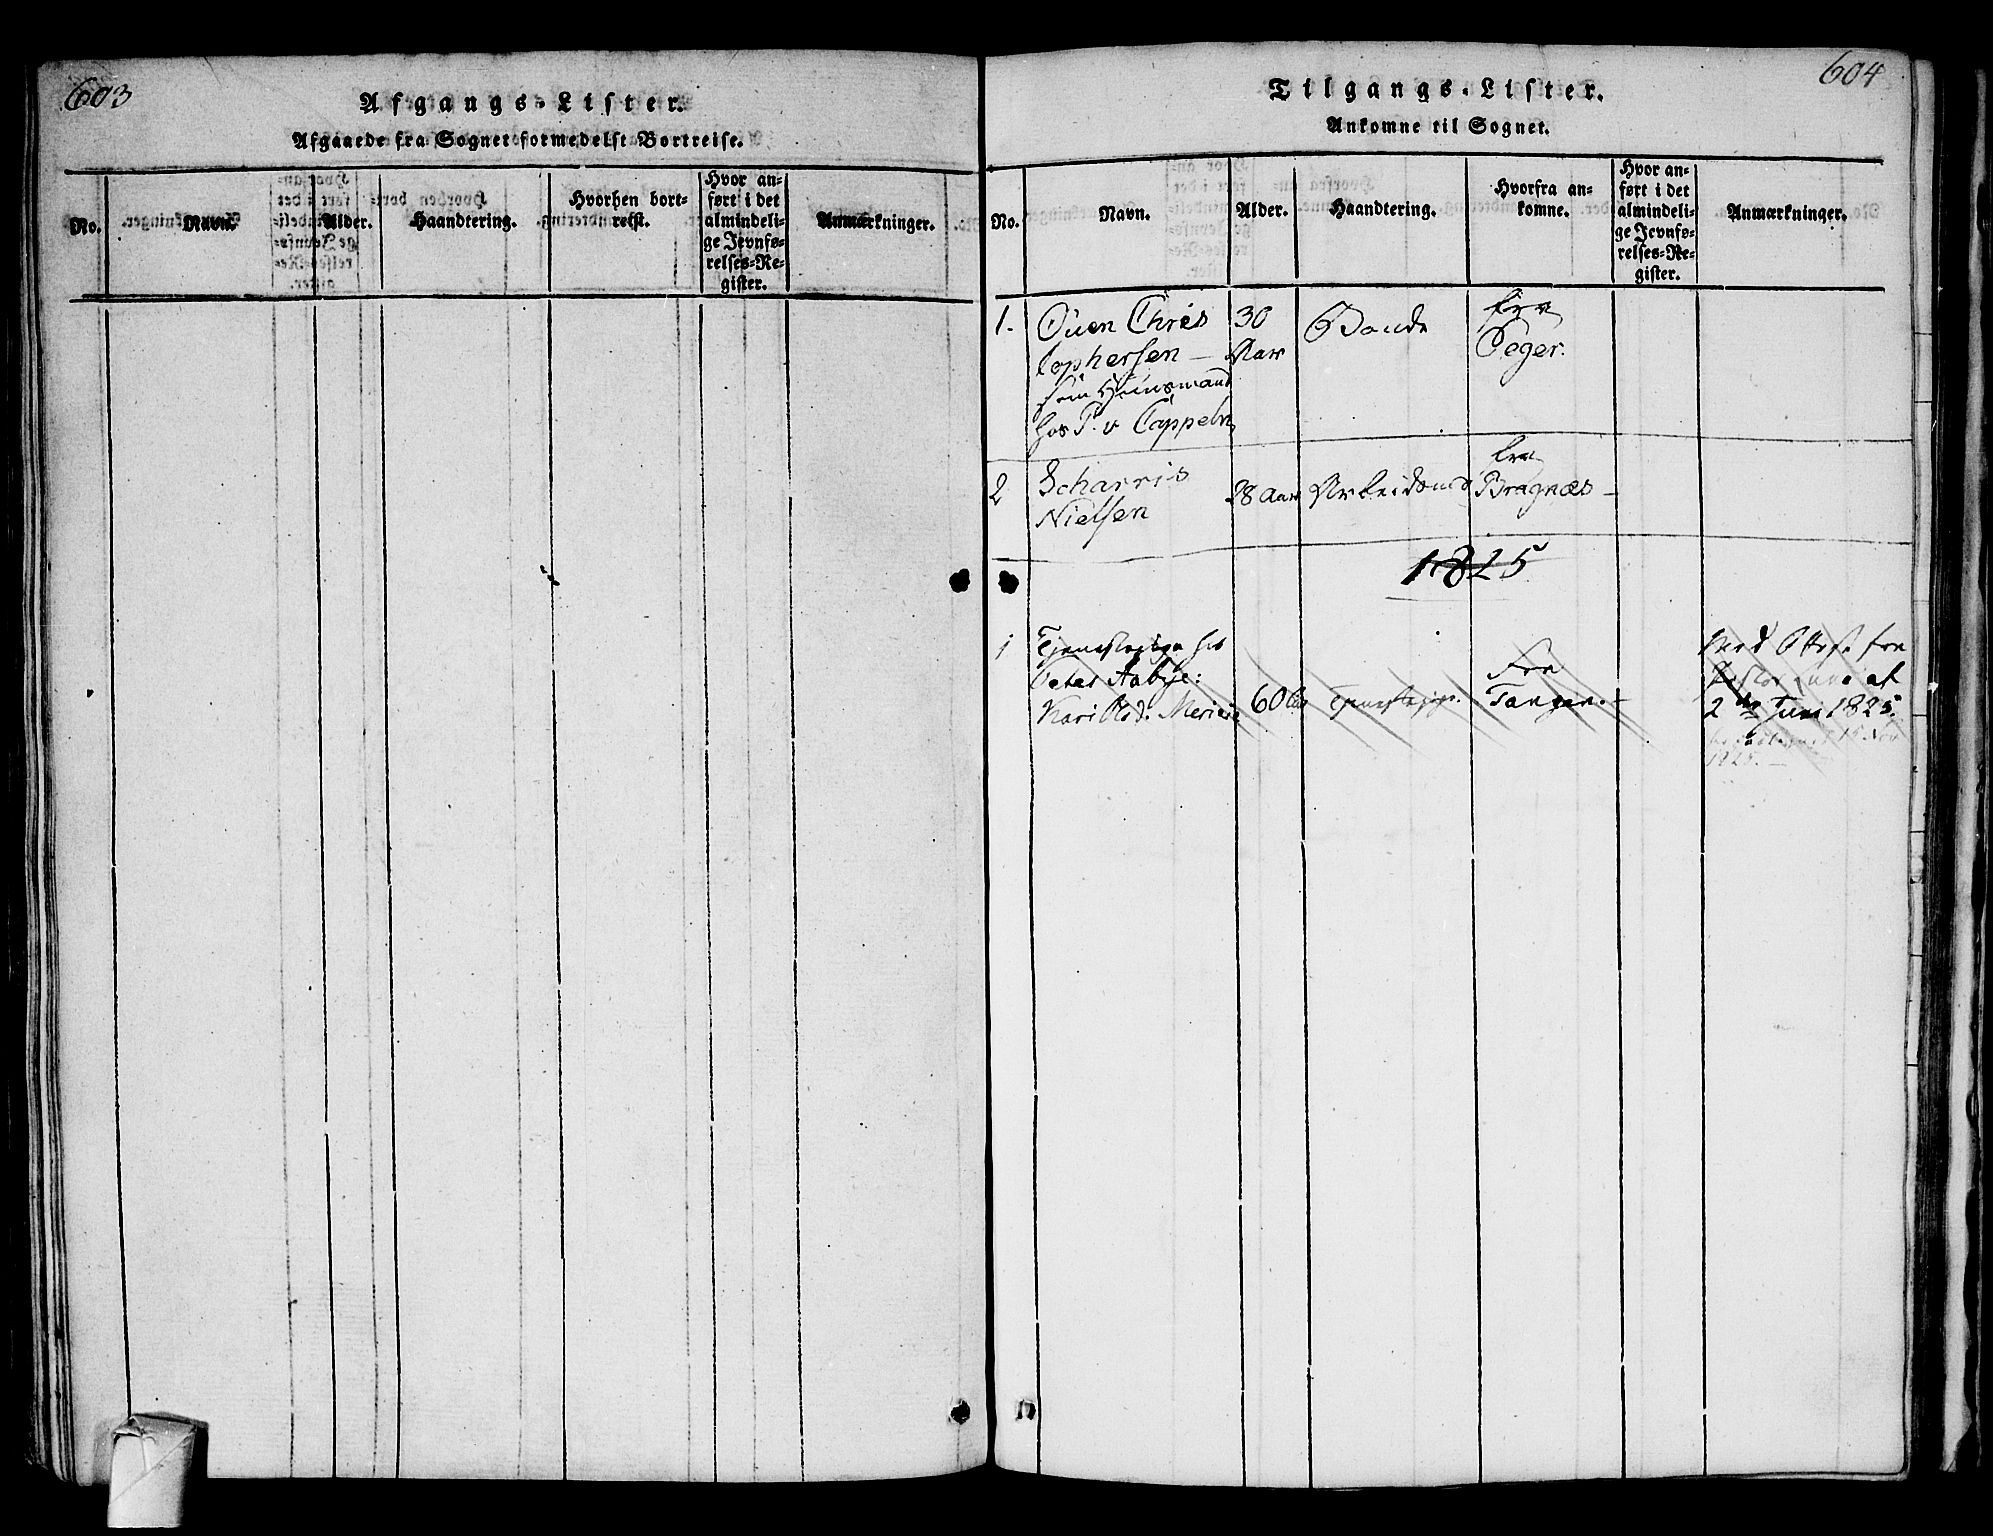 603
Afgangs-Lister.
Afgaaede fra Sognet formedelst Bortreise.
No. Navn. Alder. Haandtering. Hvorhen bort-
reist. Hvor an-
ført i det
almindeli-
ge Jevnfø-
relses-Re-
gister. Anmærkninger.
604
Tilgangs-Lister.
Ankomne til Sognet.
No. Navn. Alder. Haandtering. Hvorfra an-
komne. Hvor an-
ført i det
almindeli-
ge Jevnfø-
relses-Re-
gister. Anmærkninger.
1. Ouen Chris 30 Bonde fra
tophersen – Aar Eeger.
som Huusmand
hos P. v Cappeln
2 Scharris 28 Aar Arbeidsmd fra
Nielsen Bragnæs –
1825
1 Tjenestepige hos
Peter Aabye:
Kari 60 Tjenestepige. Fra
Tangen. –
Med Attest fra
Pastor af
2den Juni 1825.
15 Nov
1825. –